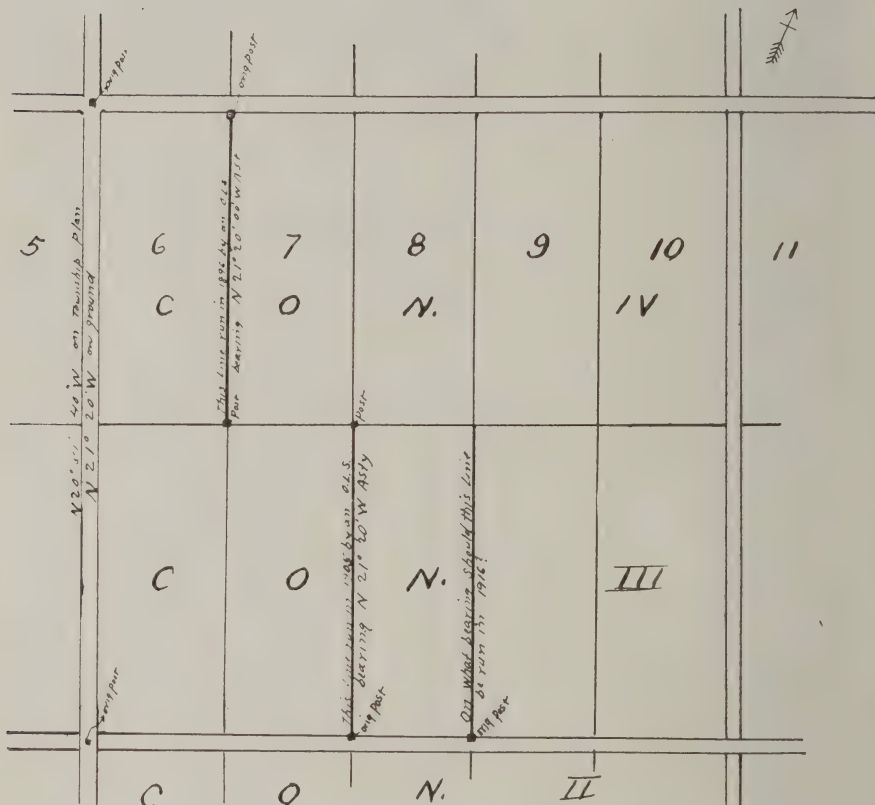 orig post
orig post
5
6
7
8
9
10
11
C O N. IV
N 20° 40' W on Township Plan
N 21° 20' W on ground
This line run in 1896 by an O.L.S.
bearing N 21° 20' 00" W Ast
Post
Post
C O N. III
This line run in by an O.L.S.
bearing N 21° 20' W Asty
On what bearing should this line
be run in 1916?
orig post
orig post
orig post
C O N. II